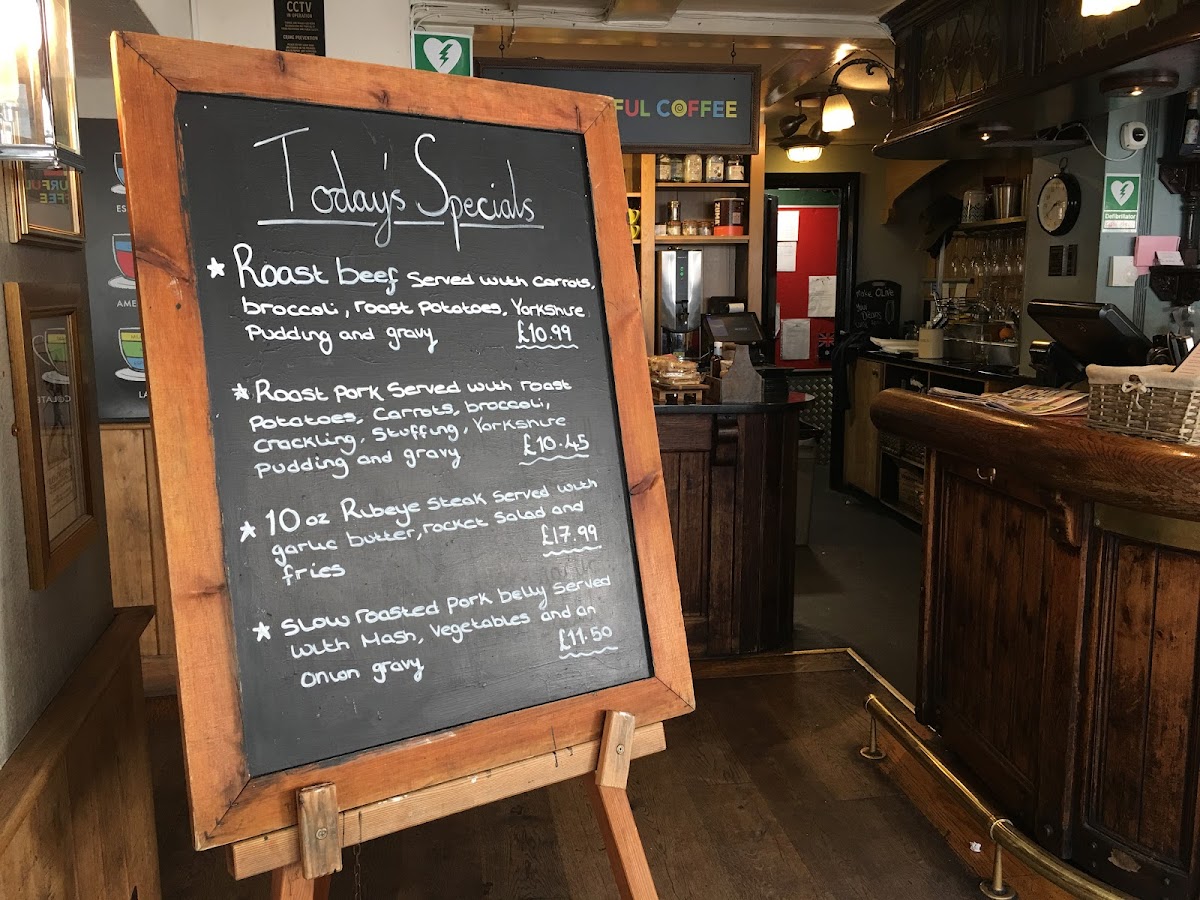 CCTV
IN OPERATION
CRIME PREVENTION
FUL COFFEE
Today's Specials
* Roast beef served with carrots,
broccoli, roast potatoes, Yorkshire
Pudding and gravy £10.99
* Roast Pork served with roast
Potatoes, Carrots, broccoli,
Crackling, Stuffing, Yorkshire
pudding and gravy £10.45
* 10oz Ribeye steak served with
garlic butter, rocket salad and
fries £17.99
* Slow roasted pork belly served
with Mash, Vegetables and an
Onion gravy £11.50
Defibrillator
ES
AME
LA